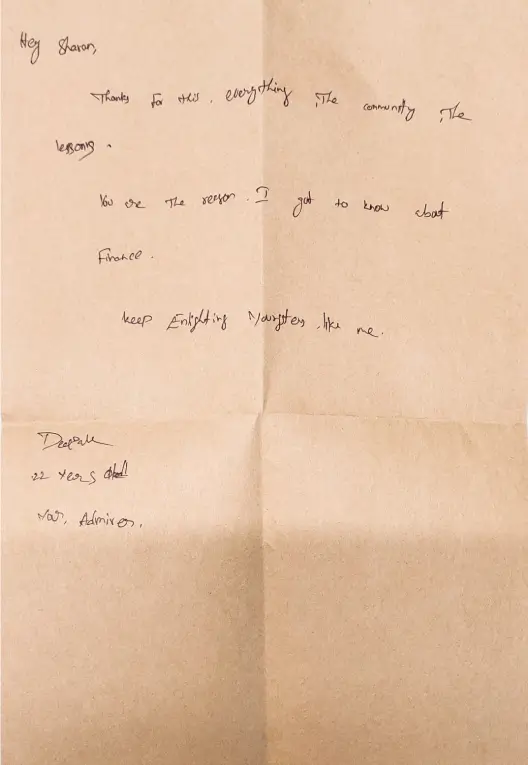 Hey Sharan,
Thanks for this. everything, The community, The
lessons.
You are The reason. I got to know about
Finance.
keep Enlighting Youngsters, like me.
Deepak
22 Years old
Your, Admirer.